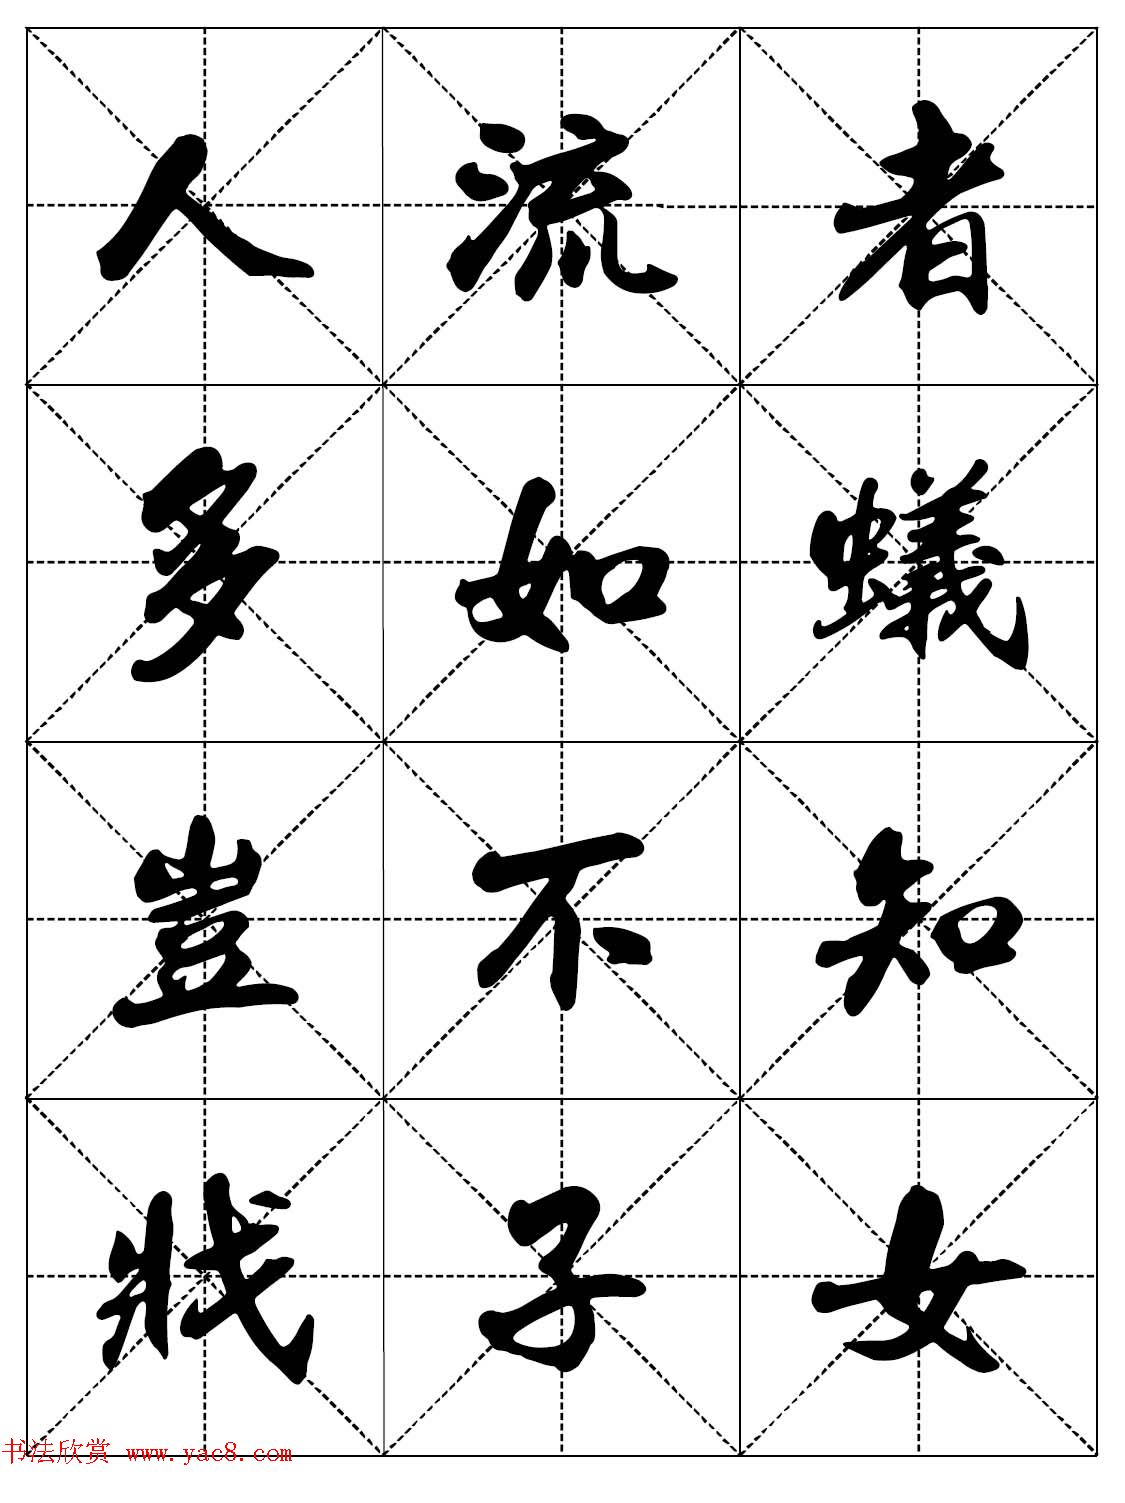 人流者
多如蟻
豈不知
戕子女
书法欣赏 www.yac8.com